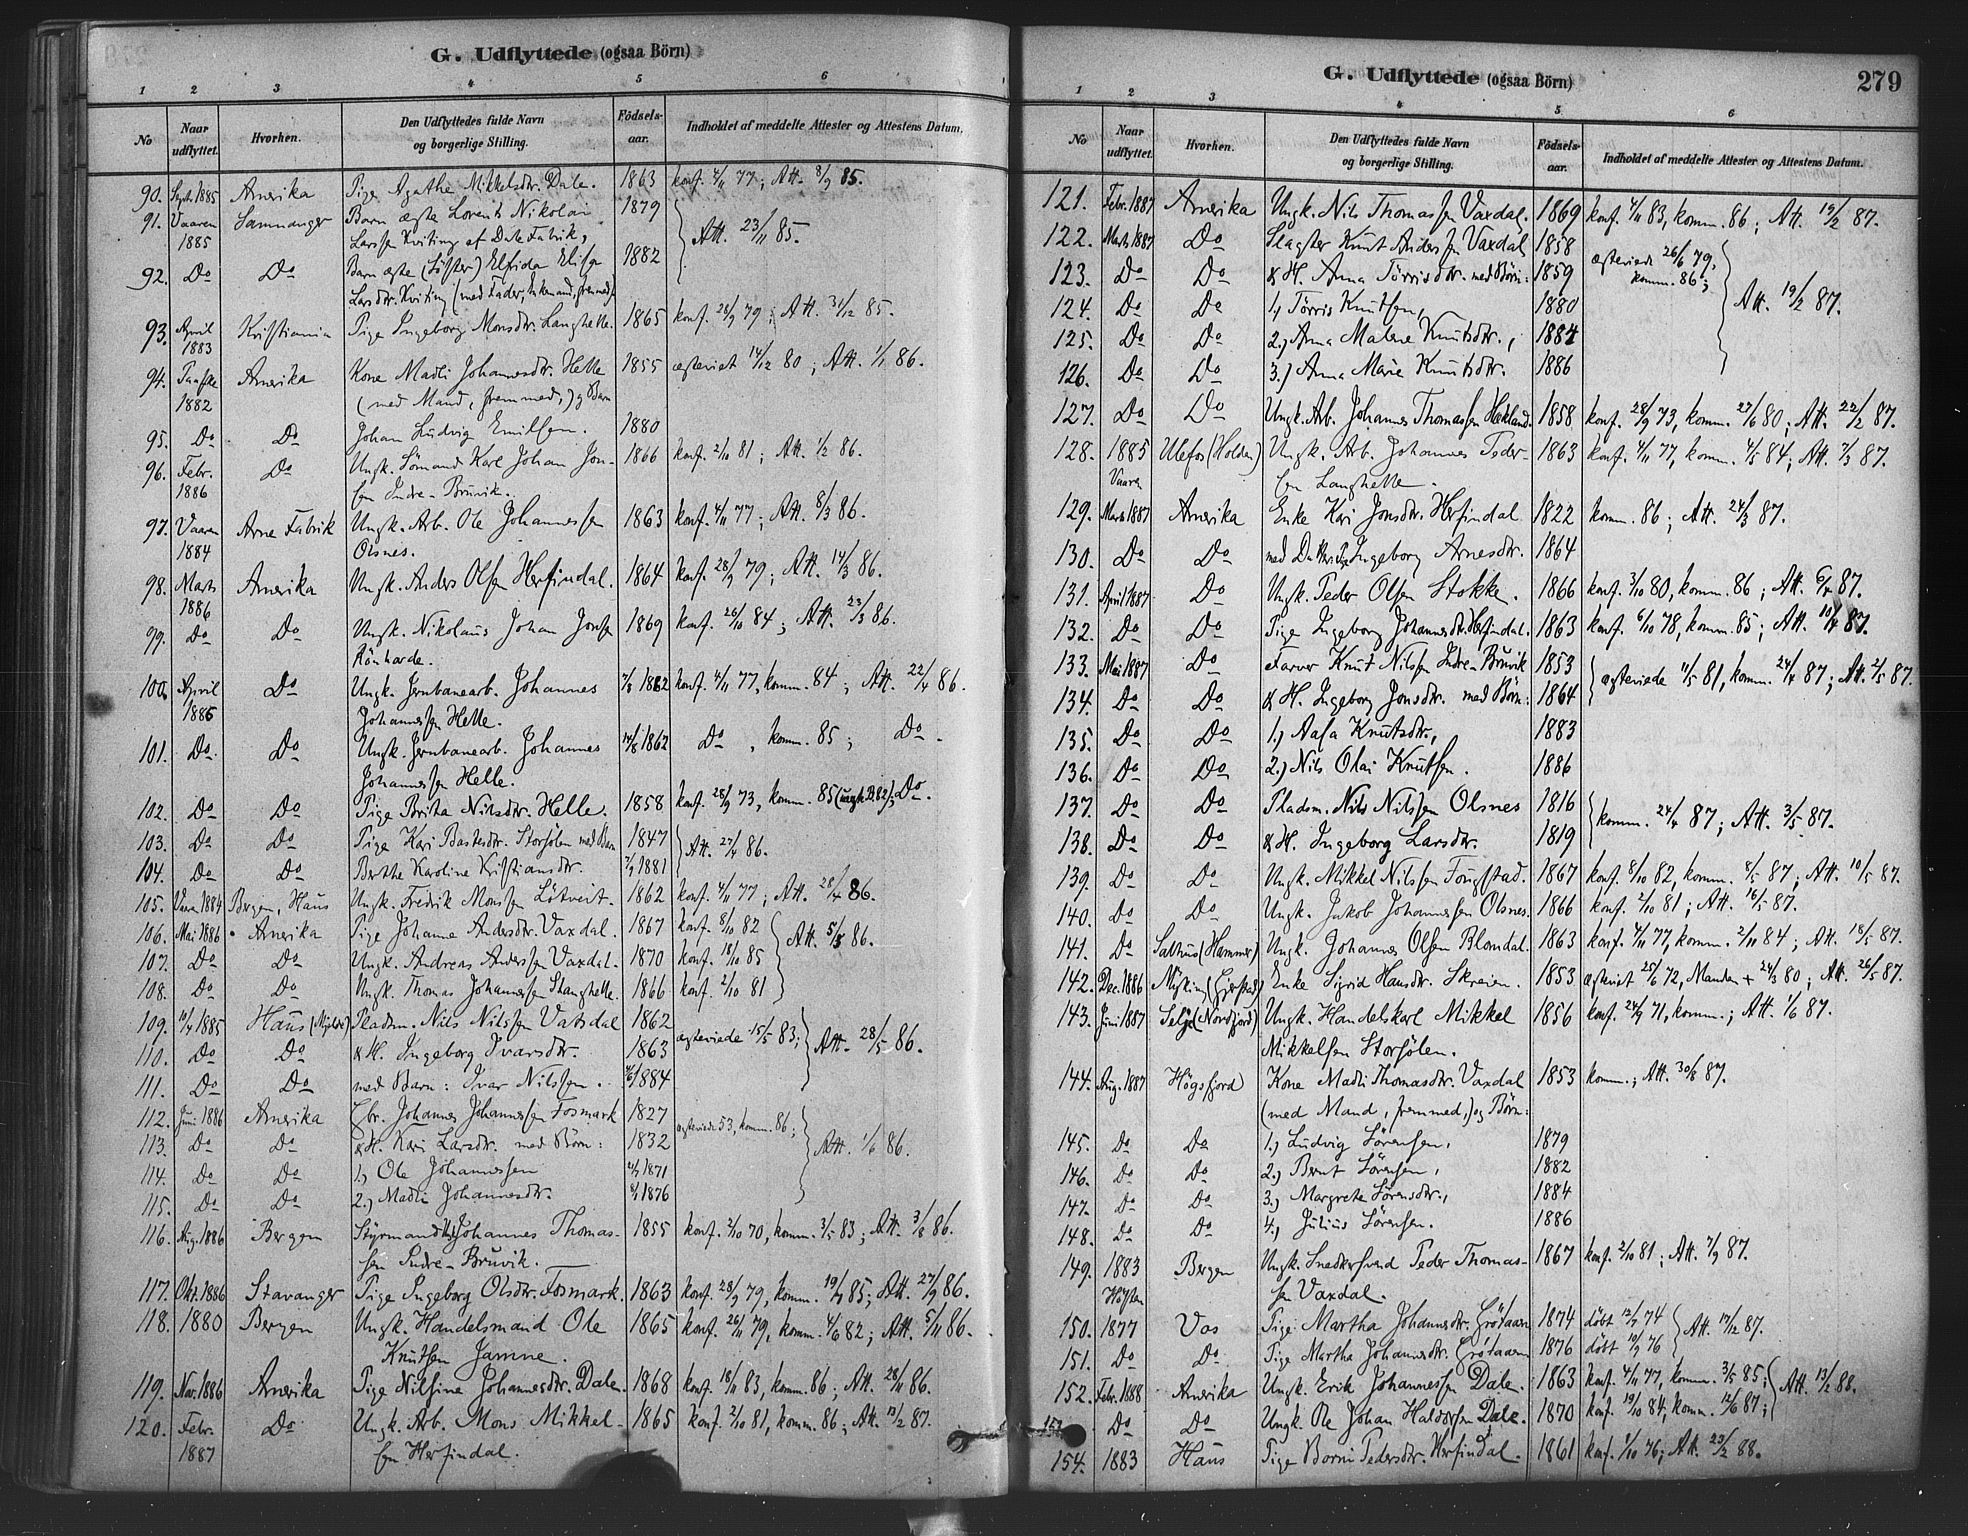 G. Udflyttede (ogsaa Börn)
1 2 3 4 5 6
No Naar udflyttet. Hvorhen. Den Udflyttedes fulde Navn og borgerlige Stilling. Födsels-aar. Indholdet af meddelte Attester og Attestens Datum.
90. Sept. 1885 Amerika Pige Agathe Mikkelsdtr. Dale. 1863 konf. 4/11 77; Att. 8/9 85.
91. Vaaren Samnanger Barn ægte Lorents Nikolai 1879
1885 Larssen Kviting af Dale Fabrik,
Att. 23/11 85.
92. Do Do Barn ægte Elfida Elise 1882
Larsdtr. Kviting (med Fader,
93. April Kristiania Pige Ingeborg Monsdtr. Langhelle. 1865 konf. 28/9 79; Att. 31/12 85.
1883
94. Amerika Kone Madli Johannesdtr. Helle 1855 ægteviet 14/12 80; Att. 1/1 86.
1882 (med Mand, fremmed,) og Barn
95. Do Do Johan Ludvig Emilsen. 1880
96. Febr. Do Ungk. Sömand Karl Johan Jon- 1866 konf. 2/10 81; Att. 1/2 86.
1886 sen Indre-Bruvik.
97. Vaaren Arne Fabrik Ungk. Arb. Ole Johannessen 1863 konf. 4/11 77; Att. 8/3 86.
1884 Olsnes.
98. Marts Amerika Ungk. Anders Olsen Herfindal. 1864 konf. 28/9 79; Att. 14/3 86.
1886
99. Do Do Ungk. Nikolaus Johan Jonsen 1869 konf. 26/10 84; Att. 23/3 86.
Rönharde.
100. April Do Ungk. Jernbanearb. Johannes 7/8 1862 konf. 4/11 77, komm. 84; Att. 22/4 86.
1886 Johannessen Helle.
101. Do Do Ungk. Jernbanearb. Johannes 1862 Do, komm. 85; Do.
Johannessen Helle.
102. Do Do Pige Brita Nilsdtr. Helle. 1858 konf. 28/9 73, komm. 85 Do.
103. Do Do Pige Kari Bastesdtr. Storjölen med Barn 1847
Att. 27/4 86.
104. Do Do Berthe Karoline Kristiansdtr. 1881
105. Vaar. 1884 Bergen, Haus Ungk. Fredrik Monssen Lötveit. 1862 konf. 4/11 77; Att. 28/4 86.
106. Mai 1886 Amerika Pige Johanna Andersdtr. Vaxdal. 1867 konf. 8/10 82
Att. 5/5 86.
107. Do Do Ungk. Andreas Anderssen Vaxdal. 1870 konf. 18/10 85
108. Do Do Ungk. Thomas Johannessen Stanghelle. 1866 konf. 2/10 81
109. 1885 Haus (Mjelde) Pladsm. Nils Nilssen Vatsdal 1862
ægteviede 15/5 83; Att. 28/5 86.
110. Do Do & H. Ingeborg Ivarsdtr. 1863
111. Do Do med Barn: Ivar Nilssen. 1884
112. Juni 1886 Amerika Gbr. Johannes Johannessen Fosmark 1827
ægteviede 53, komm. 86; Att. 1/6 86.
113. Do Do & H. Kari Larsdtr. med Börn: 1832
114. Do Do 1.) Ole Johannessen 1871
115. Do Do 2.) Madli Johannesdtr. 1876
116. Aug. 1886 Bergen Styrmand Johannes Thomas- 1855 konf. 2/10 70, komm. 3/5 83; Att. 3/8 86.
sen Indre-Bruvik.
117. Okt. 1886 Stavanger Pige Ingeborg Olsdtr. Fosmark. 1863 konf. 28/9 79, komm. 19/4 85; Att. 27/9 86.
118. 1880 Bergen Ungk. Handelsmand Ole 1865 konf. 26/11 79, komm. 4/6 82; Att. 5/11 86.
Knutsen Jamne.
119. Nov. 1886 Amerika Pige Nilsine Johannesdtr. Dale. 1868 konf. 18/11 83, komm. 86; Att. 28/11 86.
120. Febr. Do Ungk. Arb. Mons Mikkel- 1865 konf. 2/10 81, komm. 86; Att. 13/2 87.
1887 sen Herfindal.
G. Udflyttede (ogsaa Börn) 279
1 2 3 4 5 6
No Naar udflyttet. Hvorhen. Den Udflyttedes fulde Navn og borgerlige Stilling. Födsels-aar. Indholdet af meddelte Attester og Attestens Datum.
121. Febr. 1887 Amerika Ungk. Nils Thomassen Vaxdal. 1869 konf. 4/11 83, komm. 86; Att. 19/2 87.
122. Marts 1887 Do Slagter Knut Anderssen Vaxdal 1858
ægteviede 26/6 79, komm. 86; Att. 19/2 87.
123. Do Do & H. Anna Törrisdtr. med Börn: 1859
124. Do Do 1.) Törris Knutsen, 1880
125. Do Do 2.) Anna Malene Knutsdtr., 1884
126. Do Do 3.) Anna Marie Knutsdtr. 1886
127. Do Do Ungk. Arb. Johannes Thomassen Hekland. 1858 konf. 28/9 73, komm. 27/6 80; Att. 22/2 87.
128. 1885 Ulefos (Holden) Ungk. Arb. Johannes Peder- 1863 konf. 4/11 77, komm. 4/5 84; Att. 7/3 87.
Vaaren sen Langhelle.
129. Marts 1887 Amerika Enke Kari Jonsdtr. Herfindal 1822 komm. 86; Att. 24/3 87.
130. Do Do med Datter Pige Ingeborg Arnesdtr. 1864
131. April 1887 Do Ungk. Peder Olsen Stokke. 1866 konf. 3/10 80, komm. 86; Att. 6/4 87.
132. Do Do Pige Ingeborg Johannesdtr. Herfindal. 1863 konf. 6/10 78, komm. 85; Att. 10/4 87.
133. Mai 1887 Do Farver Knut Nilssen Indre-Bruvik 1853
ægteviede 11/5 81, komm. 24/4 87; Att. 2/5 87.
134. Do Do & H. Ingeborg Jonsdtr. med Börn: 1864
135. Do Do 1.) Aasa Knutsdtr., 1883
136. Do Do 2.) Nils Olai Knutsen. 1886
137. Do Do Pladsm. Nils Nilssen Olsnes 1816
komm. 24/4 87; Att. 3/5 87.
138. Do Do & H. Ingeborg Larsdtr. 1819
139. Do Do Ungk. Mikkel Nilssen Fougstad. 1867 konf. 8/10 82, komm. 8/5 87; Att. 10/5 87.
140. Do Do Ungk. Jakob Johannessen Olsnes. 1866 konf. 2/10 81; Att. 16/5 87.
141. Do Salhus (Hammer) Ungk. Johannes Olsen Blomdal. 1863 konf. 4/11 77, komm. 2/11 84; Att. 18/5 87.
142. Dec. 1886 Enke Sigrid Hansdtr. Skreien. 1853 ægteviet 25/6 72, Manden + 24/3 80; Att. 26/5 87.
143. Juni 1887 Selje (Nordfjord) Ungk. Handelskarl Mikkel 1856 konf. 24/9 71, komm.; Att. 1/6 87.
Mikkelsen Storjölen.
144. Aug. 1887 Högsfjord Kone Madli Thomasdtr. Vaxdal 1853 komm.; Att. 30/8 87.
(med Mand, fremmed,) og Börn:
145. Do Do 1.) Ludvig Sörensen, 1879
146. Do Do 2.) Bernt Sörensen, 1882
147. Do Do 3.) Margrete Sörensdtr., 1884
148. Do Do 4.) Julius Sörensen. 1886
149. 1883 Bergen Ungk. Snedkersvend Peder Thomas- 1867 konf. 2/10 81; Att. 7/9 87.
Hösten sen Vaxdal.
150. 1877 Vos Pige Martha Johannesdtr. Grötaaen 1874 döbt 12/7 74
Att. 17/12 87.
151. Do Do Pige Martha Johannesdtr. Grötaaen 1876 döbt 10/9 76
152. Febr. 1888 Amerika Ungk. Erik Johannessen Dale. 1863 konf. 4/11 77, komm. 3/5 85;
Att. 13/2 88.
153. Do Do Ungk. Ole Johan Haldorsen Dale. 1870 konf. 19/10 84, komm. 12/6 87;
154. 1883 Haus Pige Borni Pedersdtr. Herfindal. 1861 konf. 1/10 76; Att. 23/2 88.